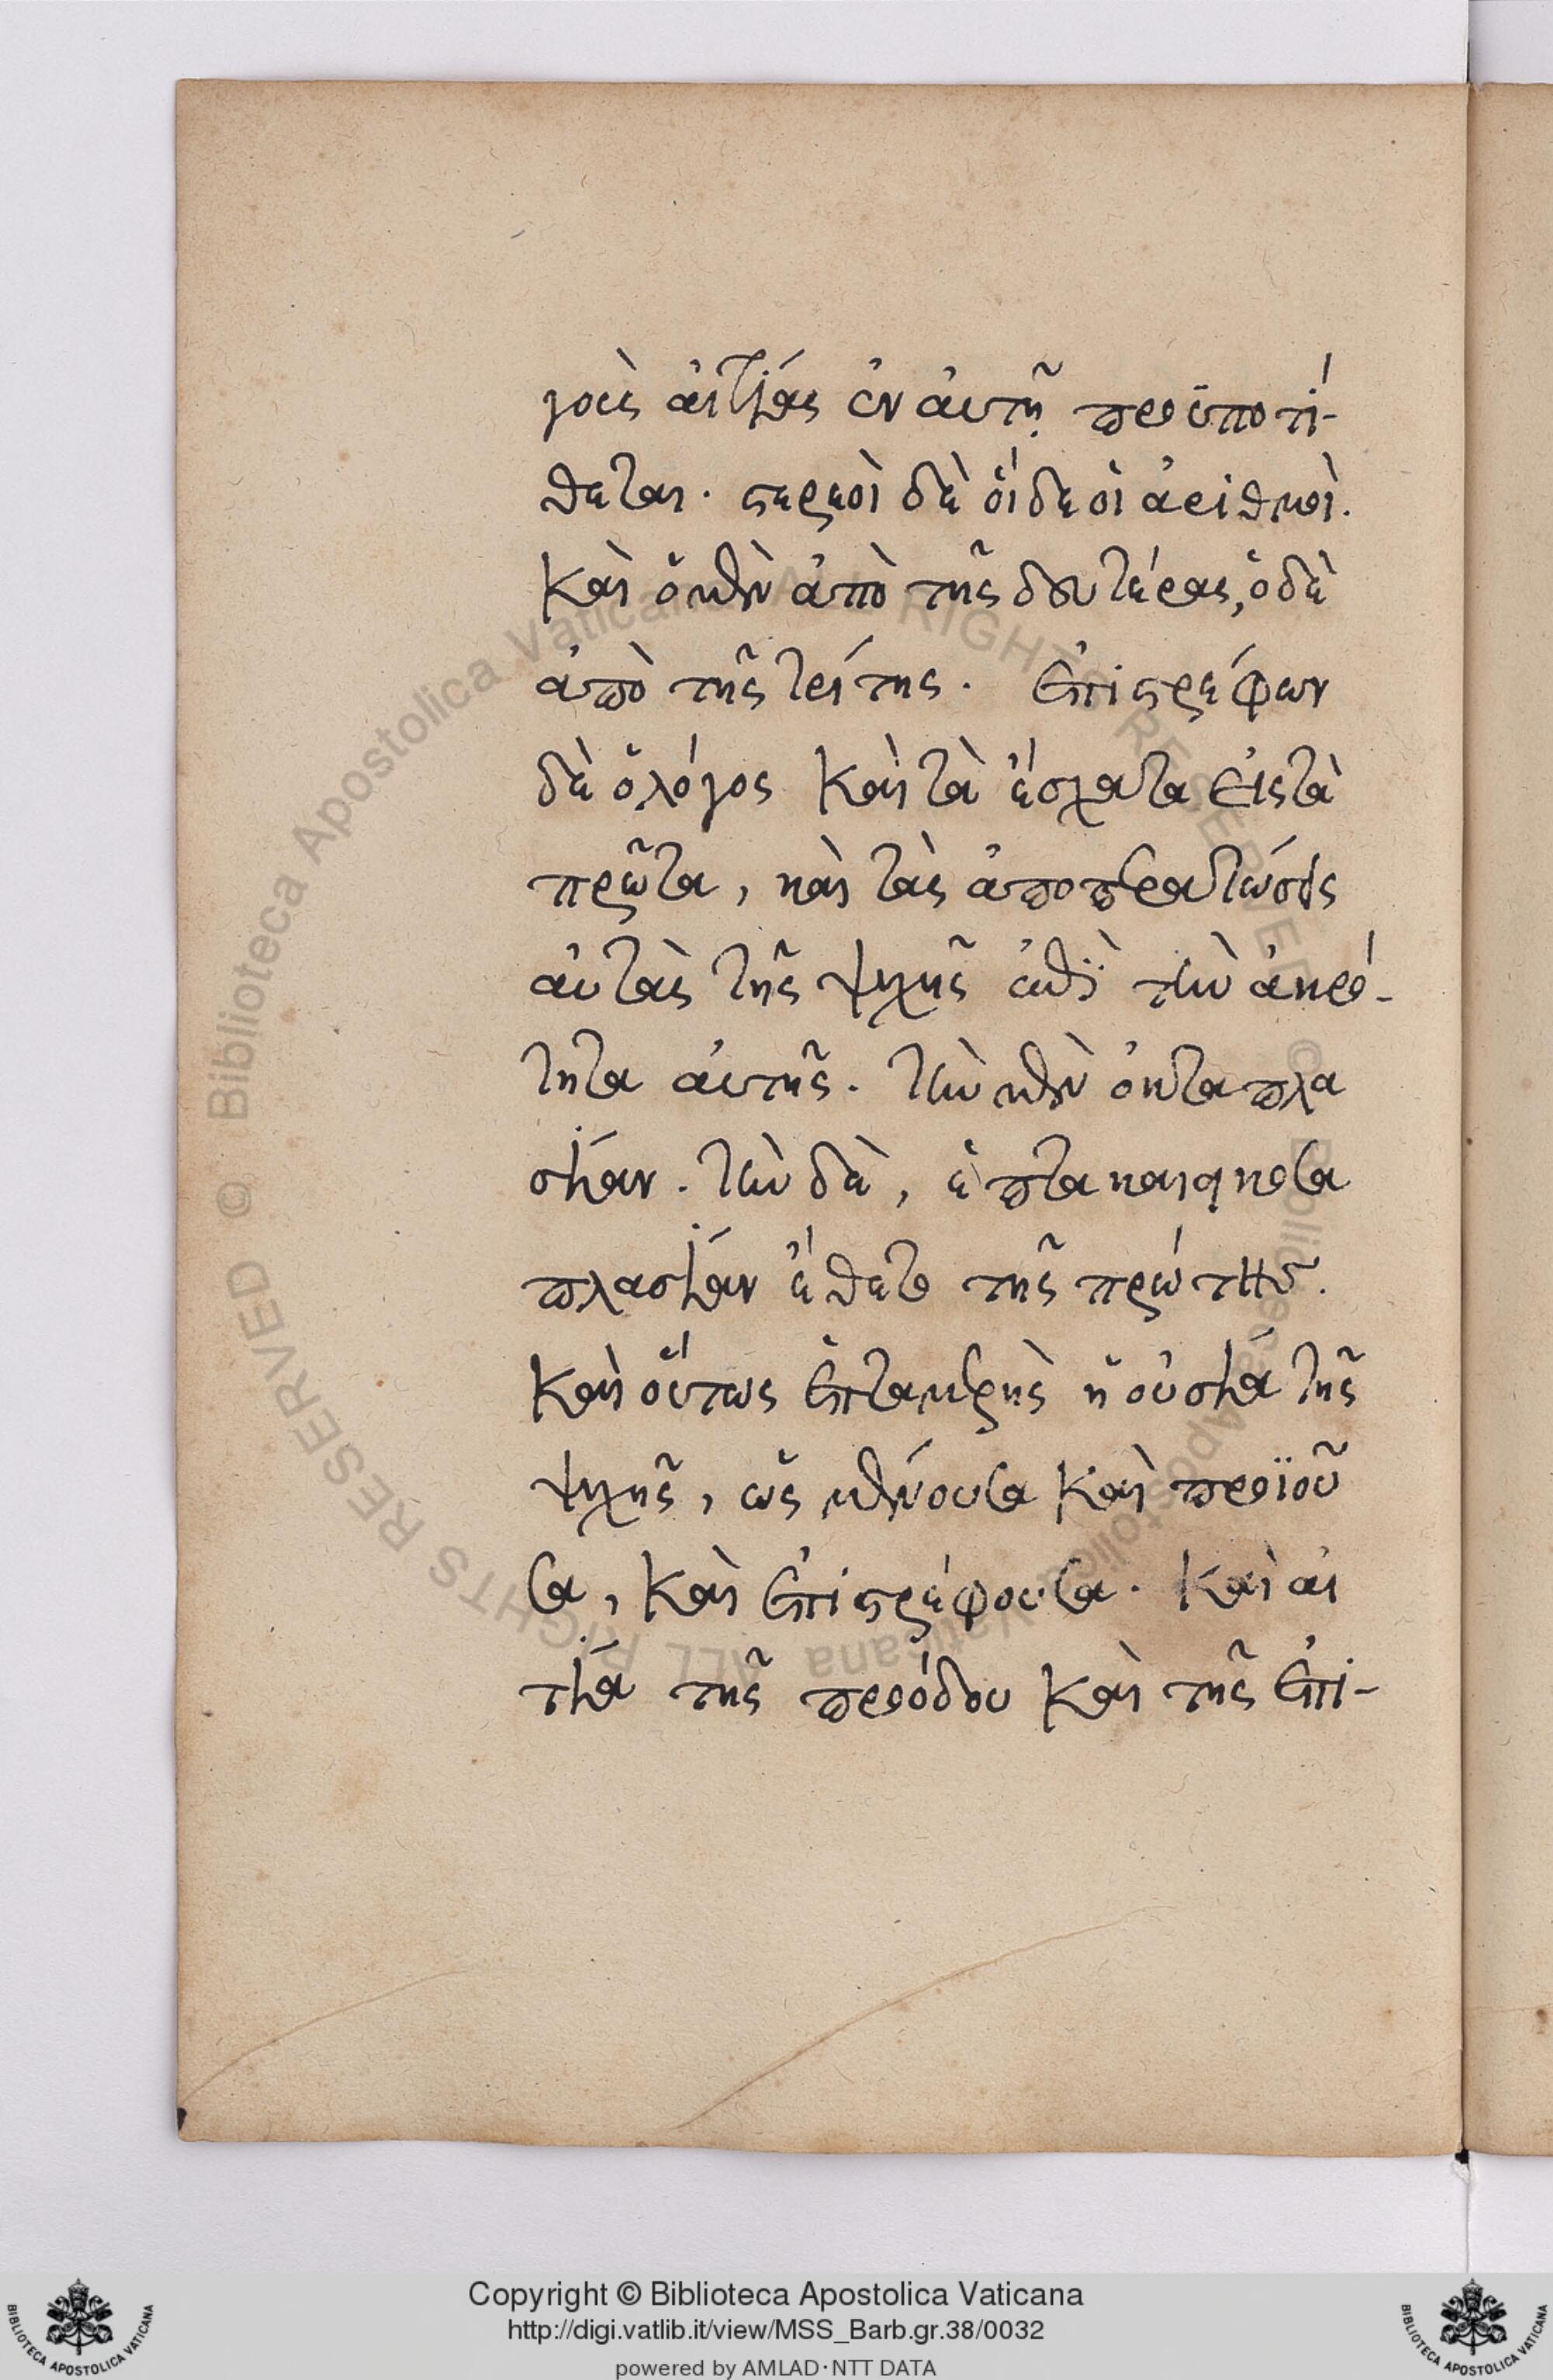 γοὺς αἰτίας ἐν αὐτῇ προϋποτί-
θεται. στερεοὶ δὲ οἵδε οἱ ἀριθμοί.
Καὶ ὁ μὲν ἀπὸ τῆς δευτέρας, ὁ δὲ
ἀπὸ τῆς τρίτης. ἐπιστρέφων
δὲ ὁ λόγος καὶ τὰ ἔσχατα εἰς τὰ
πρῶτα, καὶ τὰς ἀποπερατώσεις
αὐτὰς τῆς ψυχῆς ἐπὶ τὴν ἀκρό-
τητα αὐτῆς. τὴν μὲν ὀκταπλα
σίαν. τὴν δὲ, ἑπτακαιεικοσα
πλασίαν ἔθετο τῆς πρώτης.
Καὶ οὕτως ἑπταμερὴς ἡ οὐσία τῆς
ψυχῆς, ὡς μένουσα καὶ προϊοῦ
σα, καὶ ἐπιστρέφουσα. καὶ αἰ
τία τῆς προόδου καὶ τῆς ἐπι-
© Biblioteca Apostolica Vaticana ALL RIGHTS RESERVED © Biblioteca Apostolica Vaticana ALL RIGHTS RESERVED
Copyright © Biblioteca Apostolica Vaticana
http://digi.vatlib.it/view/MSS_Barb.gr.38/0032
powered by AMLAD·NTT DATA
BIBLIOTECA APOSTOLICA VATICANA
BIBLIOTECA APOSTOLICA VATICANA